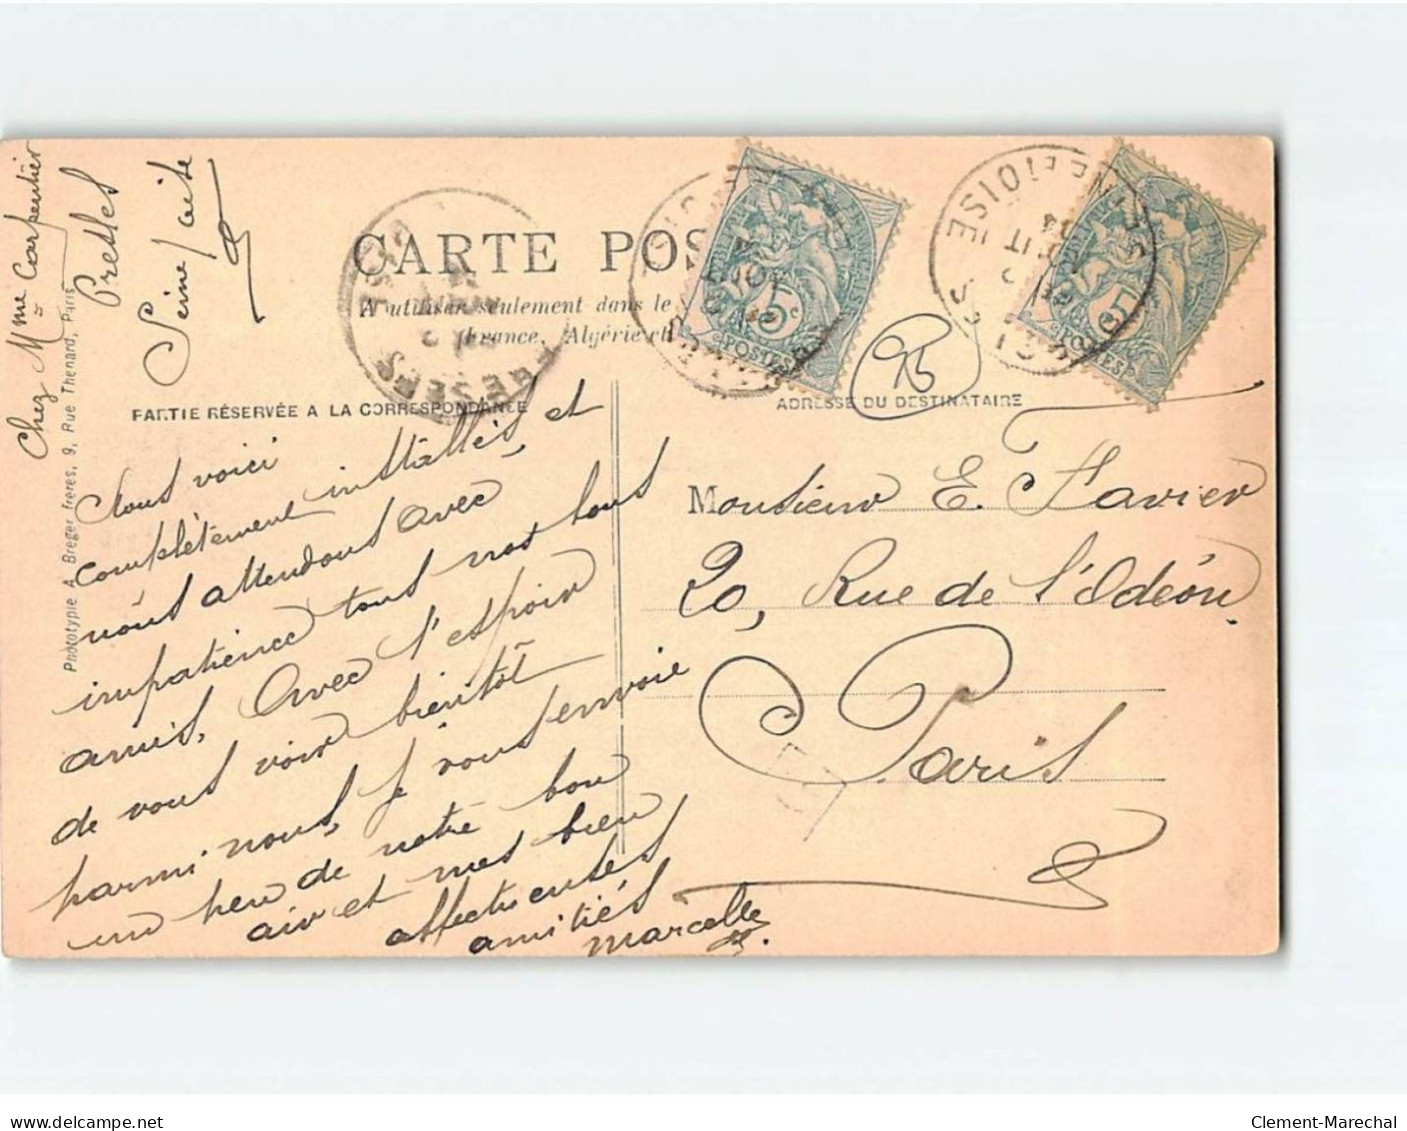 CARTE POS
A utiliser seulement dans le
France, Algérie et
PARTIE RÉSERVÉE A LA CORRESPONDANCE
ADRESSE DU DESTINATAIRE
Chez Mme Carpentier
Presles
Seine
Phototypie A. Breger frères, 9, Rue Thenard, Paris
95
5c
POSTES
POSTES
Nous voici
complètement installés, et
nous attendons avec
impatience tous nos bons
amis. Avec l'espoir
de vous voir bientôt
parmi nous, je vous envoie
un peu de notre bon
air et mes bien
affectueuses
amitiés
Marcelle
Monsieur E. Favier
20, Rue de l'Odéon,
Paris
Clement-Marechal